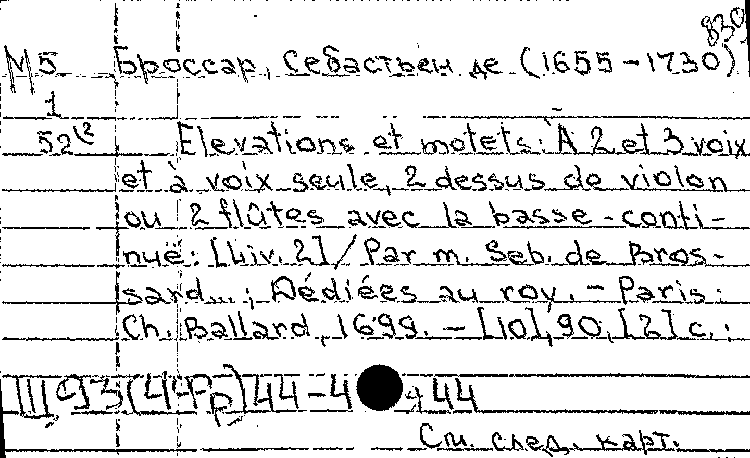 830
М5 Броссар, Себастьен де (1655-1730)
1
52 Elevations et motets: À 2 et 3 voix
et à voix seule, 2 dessus de violon
ou 2 flûtes avec la basse-conti-
nuë: [Liv. 2] / Par m. Seb. de Bros-
sard...; Dédiées au roy. - Paris:
Ch. Ballard, 1699. - [10], 90, [2] с.:
III 93(4Фр)44-4 я44
См. след. карт.